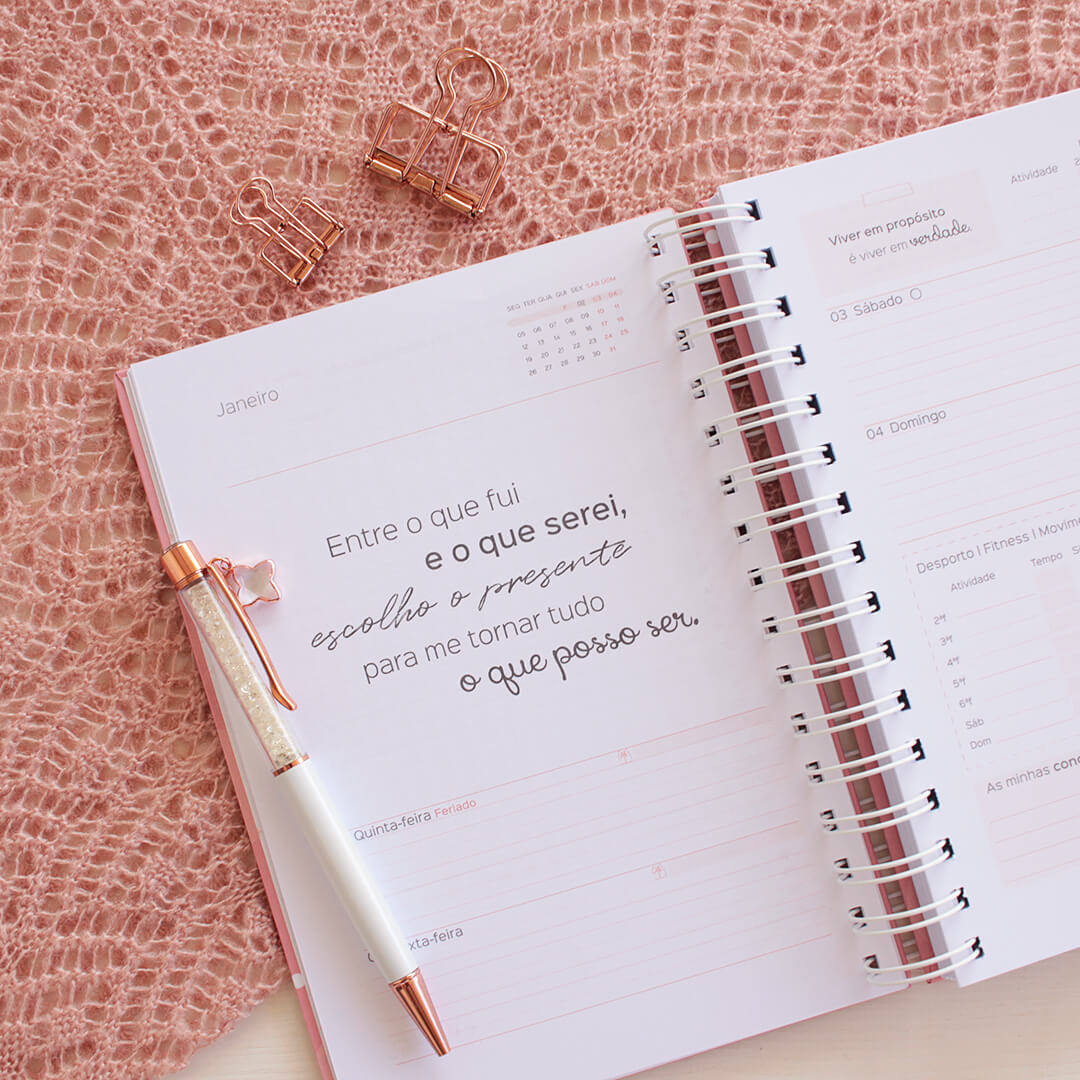 Janeiro
SEG TER QUA QUI SEX SÁB DOM
F 02 03 04
05 06 07 08 09 10 11
12 13 14 15 16 17 18
19 20 21 22 23 24 25
26 27 28 29 30 31
Entre o que fui
e o que serei,
escolho o presente
para me tornar tudo
o que posso ser.
Quinta-feira Feriado
xta-feira
Viver em propósito
é viver em verdade.
Atividade
03 Sábado
04 Domingo
Desporto | Fitness | Movime
Atividade Tempo
2ªf
3ªf
4ªf
5ªf
6ªf
Sáb
Dom
As minhas conq